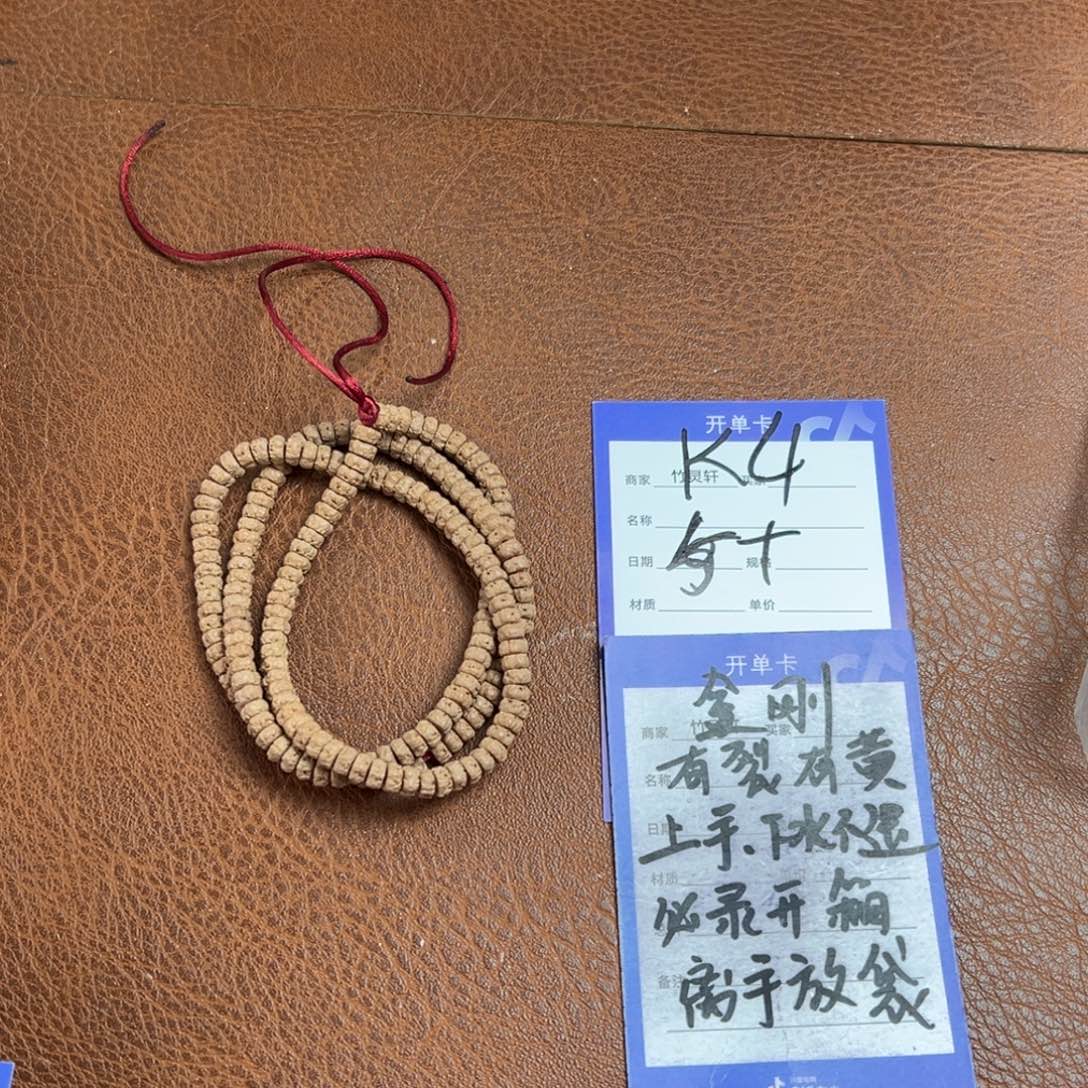 开单卡
K4
商家 竹灵轩 买家
名称
日期 规格
材质 单价
开单卡
金刚
商家 竹 轩 买家
有裂有黄
名称
上手、下水不退
日期
材质
必录开箱
备注
离手放袋